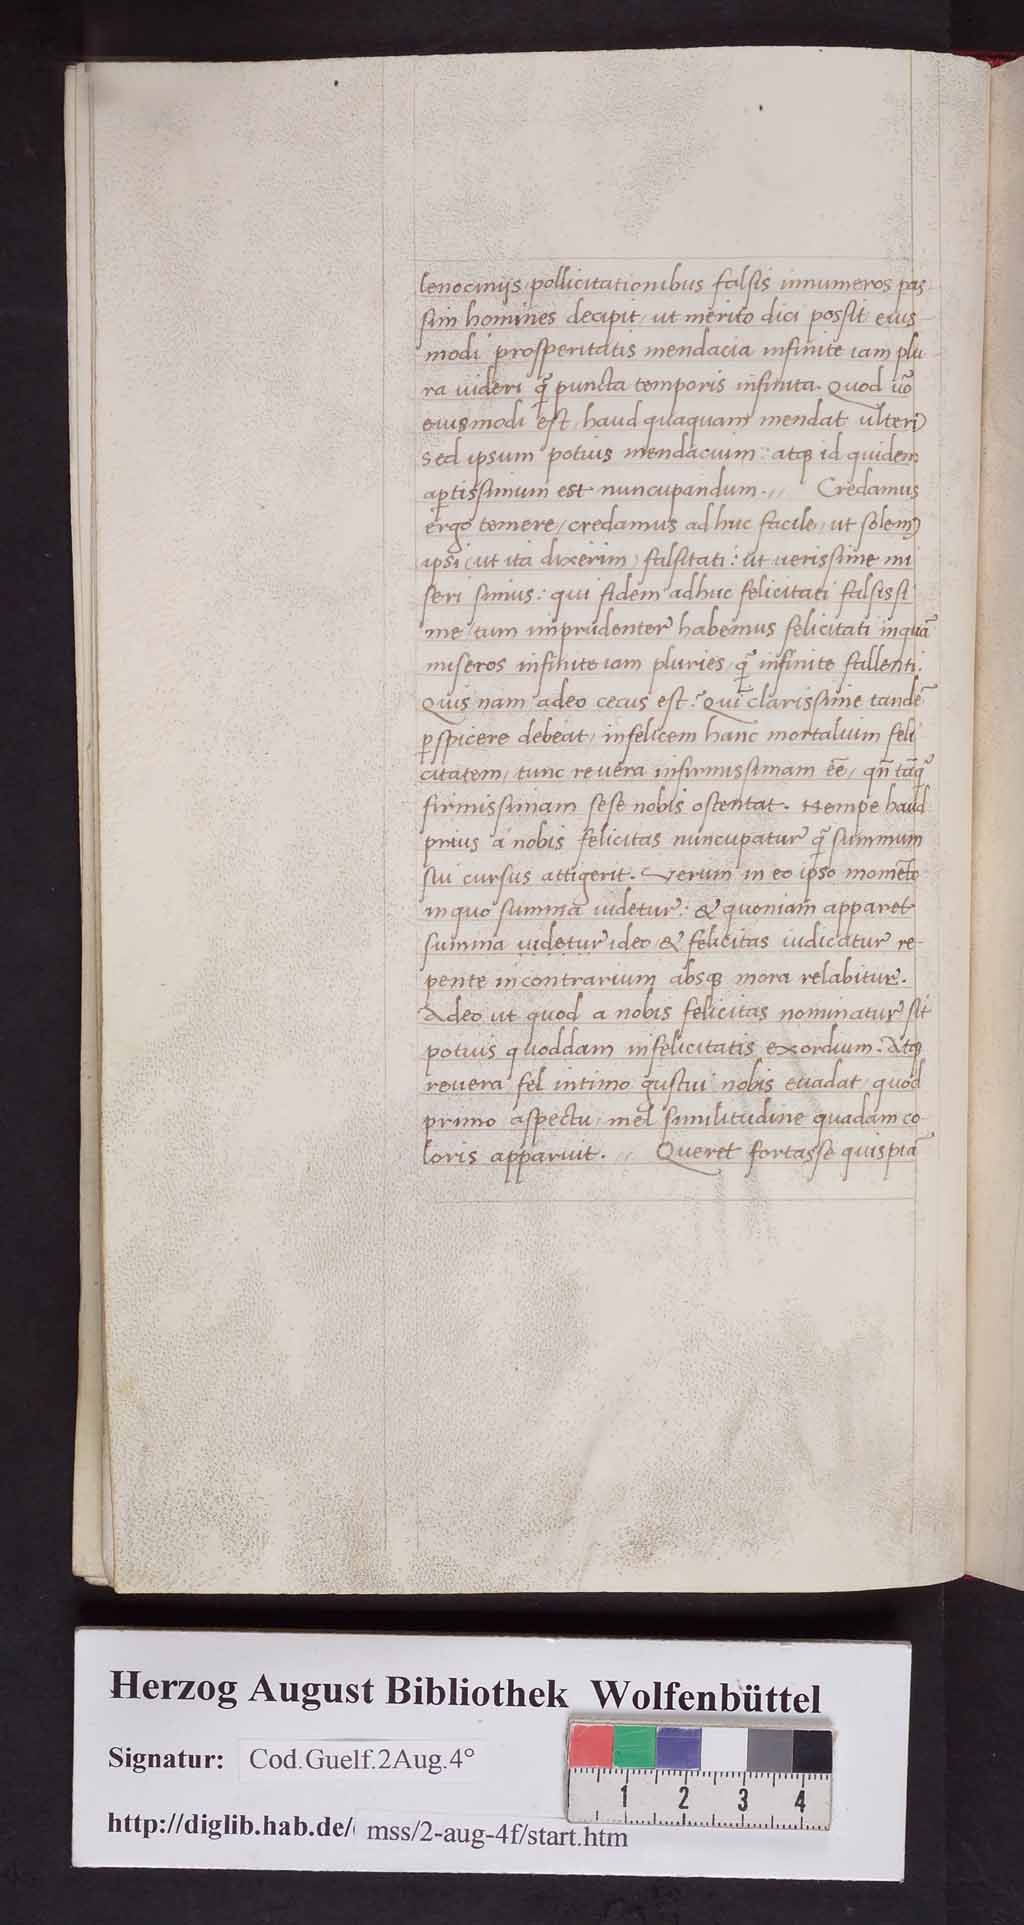 lenocinijs / pollicitationibus falsis innumeros pas-
sim homines decipit / ut merito dici possit eius-
modi prosperitatis mendacia infinite iam plu-
ra uideri q̃ puncta temporis infinita. Quod ũo
eiusmodi est / haud quaquam mendax ulteri9
sed ipsum potius mendacium: atq; id quidem
aptissimum est nuncupandum. // Credamus
ergo temere / credamus adhuc facile / ut solem9
ipsi (ut ita dixerim) falsitati: ut uerissime mi
seri simus: qui fidem adhuc felicitati falsissi
me tum imprudenter habemus felicitati inquã
miseros infinite iam pluries / q̃ infinite fallenti.
Quis nam adeo cecus est? Qui clarissime tandẽ
pspicere debeat / infelicem hanc mortalium feli
citatem / tunc reuera infirmissimam eẽ / qñ tãq̃
firmissimam sese nobis ostentat. Nempe haud
prius a nobis felicitas nuncupatur q̃ summum
sui cursus attigerit. Verum in eo ipso momẽto
in quo summa uidetur: & quoniam apparet
summa uidetur ideo & felicitas iudicatur re-
pente in contrarium absq; mora relabitur.
Adeo ut quod a nobis felicitas nominatur sit
potius quoddam infelicitatis exordium. Atq;
reuera fel intimo gustui nobis euadat / quod
primo aspectu / mel similitudine quadam co-
loris apparuit. // Queret fortasse quispiã
Herzog August Bibliothek Wolfenbüttel
Signatur: Cod.Guelf.2Aug.4°
1 2 3 4
http://diglib.hab.de/ mss/2-aug-4f/start.htm